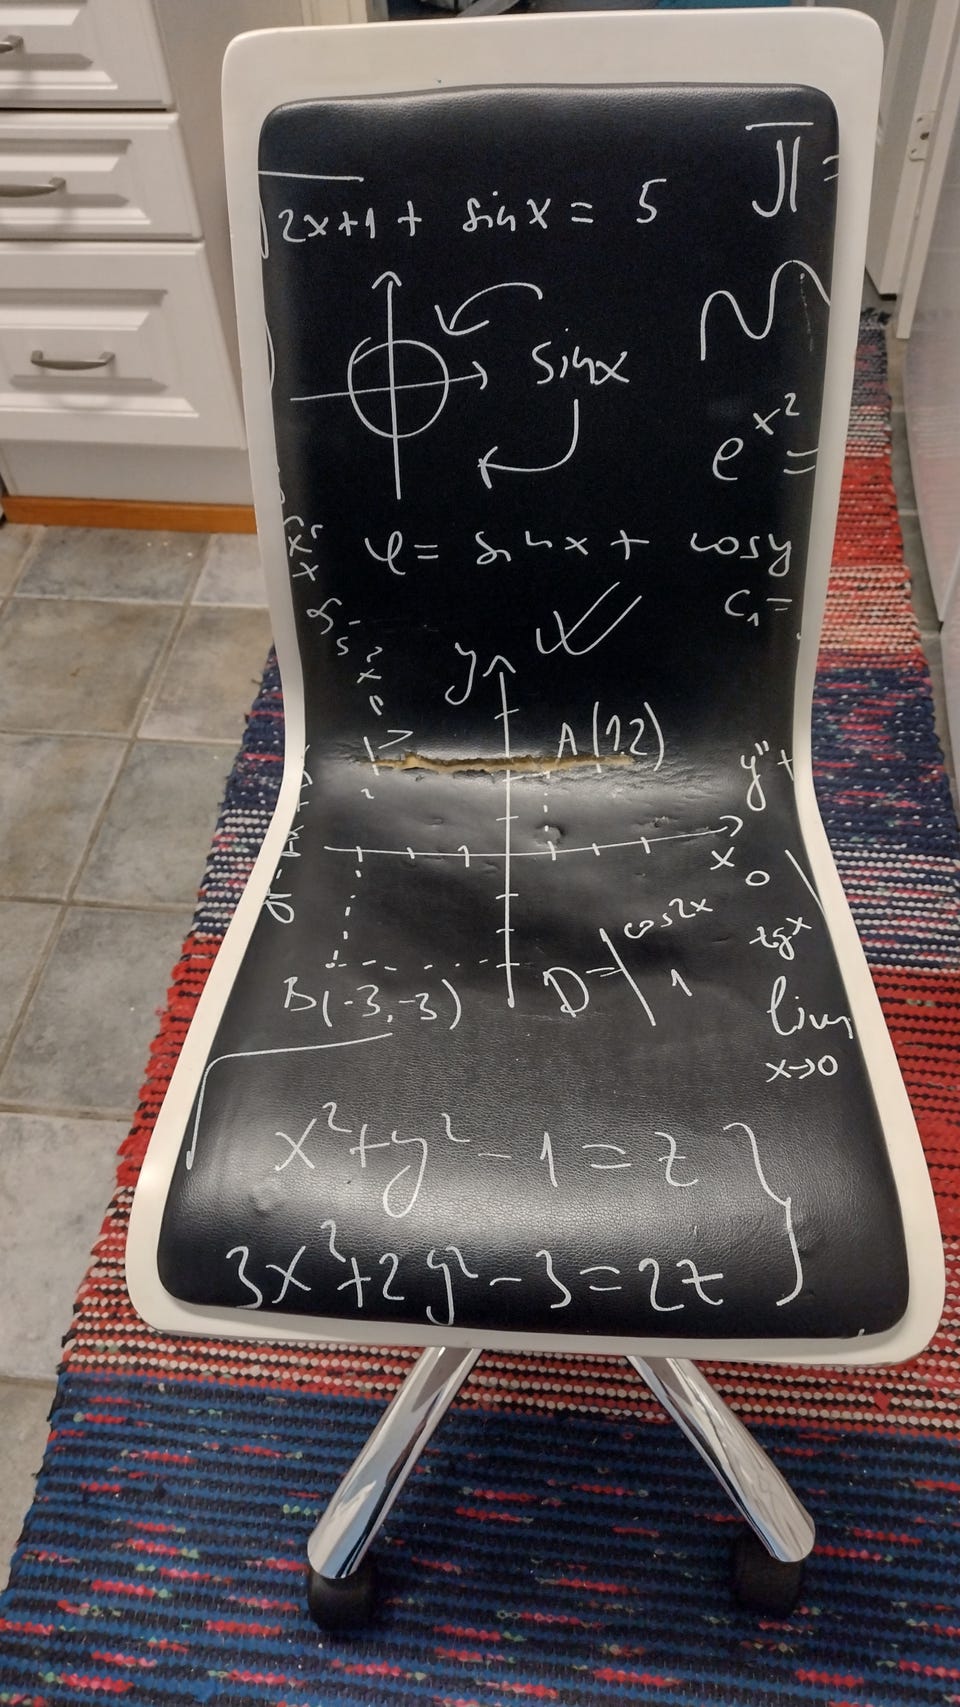 √2x+1 + sinx = 5
π =
sinx
e^x² =
φ = sinx + cosy
C₁ =
y
A(1 2)
y'' +
x
0
cos2x
tgx
D = 1
B(-3,-3)
lim
x→0
x² + y² - 1 = z
3x² + 2y² - 3 = 2z